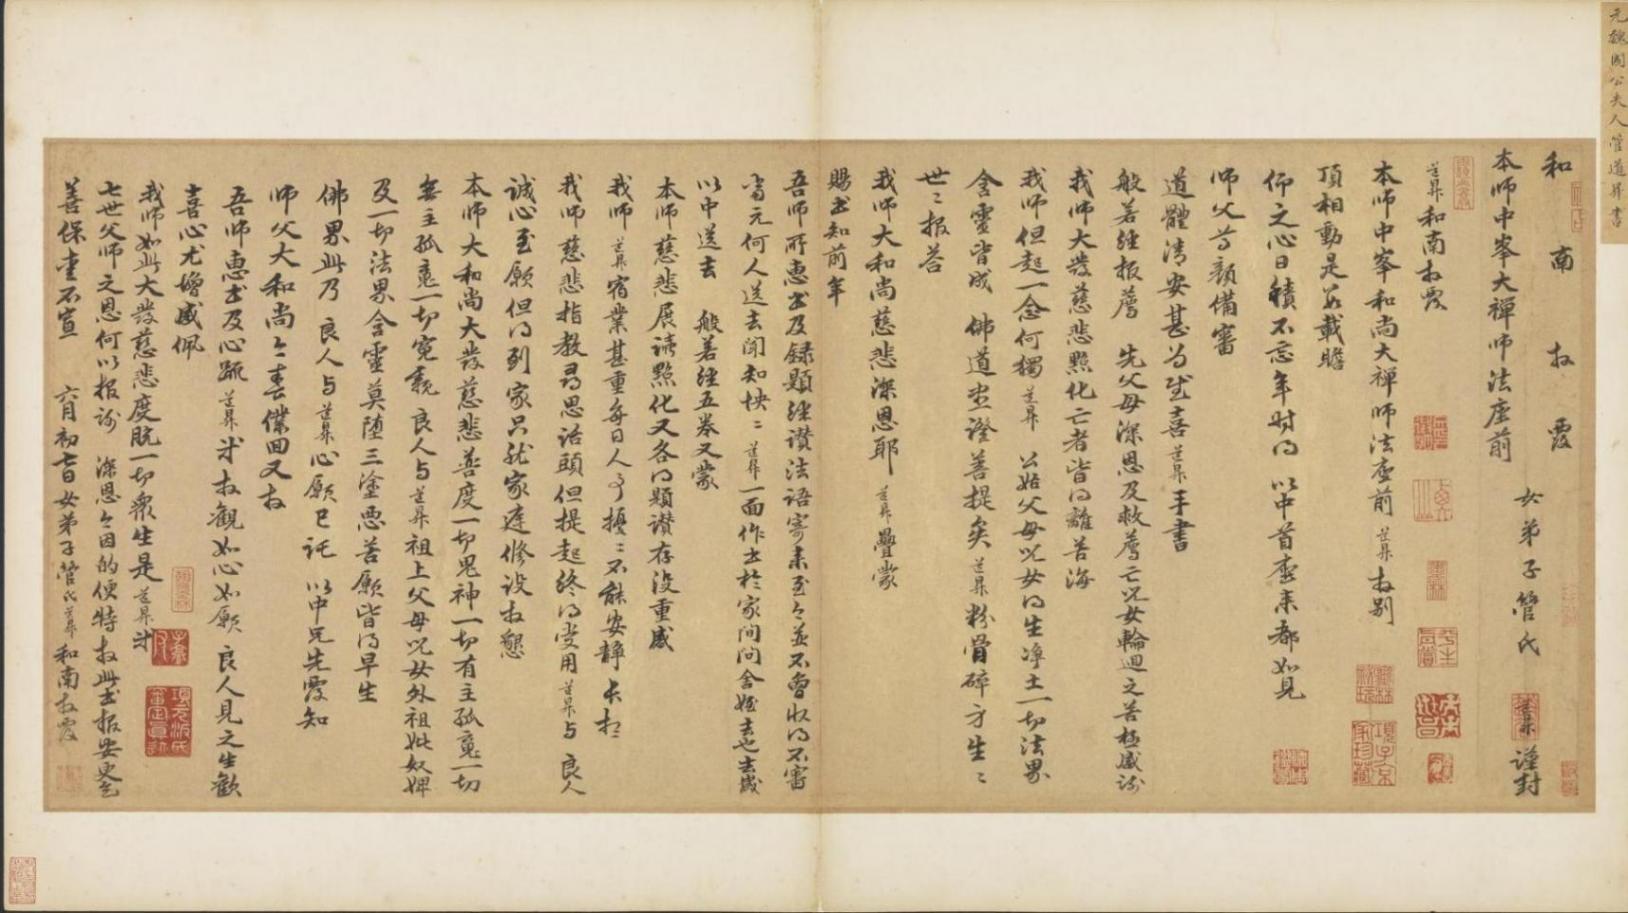 元魏國公夫人管道昇書
和南拜覆
本师中峯大禅师法座前
女弟子管氏道昇謹封
道昇和南拜覆
本师中峯和尚大禅师法座前 道昇拜别
頂相動是數載瞻
仰之心日積不忘年时得 以中首座来都如見
师父尊顏備審
道體清安甚为贺喜道昇手書
般若经报薦 先父母深恩及救薦亡兒女輪迴之苦極感谢
我师大發慈悲點化亡者皆得離苦海
我师但起一念何獨道昇 公姑父母兒女得生净土一切法界
含靈皆成 佛道悉證菩提矣道昇粉骨碎身生〻
世〻报答
我师大和尚慈悲深恩耶 道昇疊蒙
賜书知前年
吾师所惠书及録题经讚法语寄来至今並不曾收得不審
当元何人送去闻知怏〻道昇一面作书於家间问舍姪去也去歲
以中送去 般若经五卷又蒙
本师慈悲展讀點化又各得题讚存没重感
我师 道昇宿業甚重每日人事擾〻不能安静 长想
我师慈悲指教尋思话頭但提起终得受用道昇与 良人
誠心至願但得到家只就家庭修设拜懇
本师大和尚大發慈悲普度一切鬼神一切有主孤魂一切
無主孤魂一切寃親 良人与道昇祖上父母兒女外祖妣奴婢
及一切法界含靈莫堕三塗惡苦願皆得早生
佛界此乃 良人与道昇心願已託 以中兄先覆知
师父大和尚今春僕回又拜
吾师惠书及心疏道昇 拜觀如心如願 良人見之生歡
喜心尤增感佩
我师如此大發慈悲度脱一切眾生是道昇
七世父师之恩何以报谢 深恩今因的便特拜此书报安更乞
善保重不宣 六月初七日女弟子管氏道昇 和南拜覆